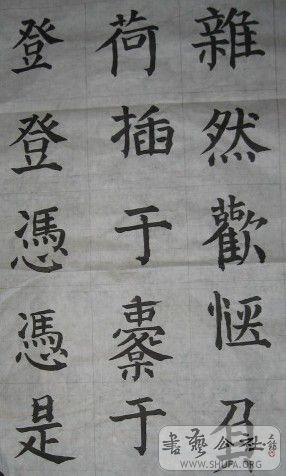 雜然歡愜負
荷插于橐于
登登憑憑是
書藝公社
WWW.SHUFA.ORG